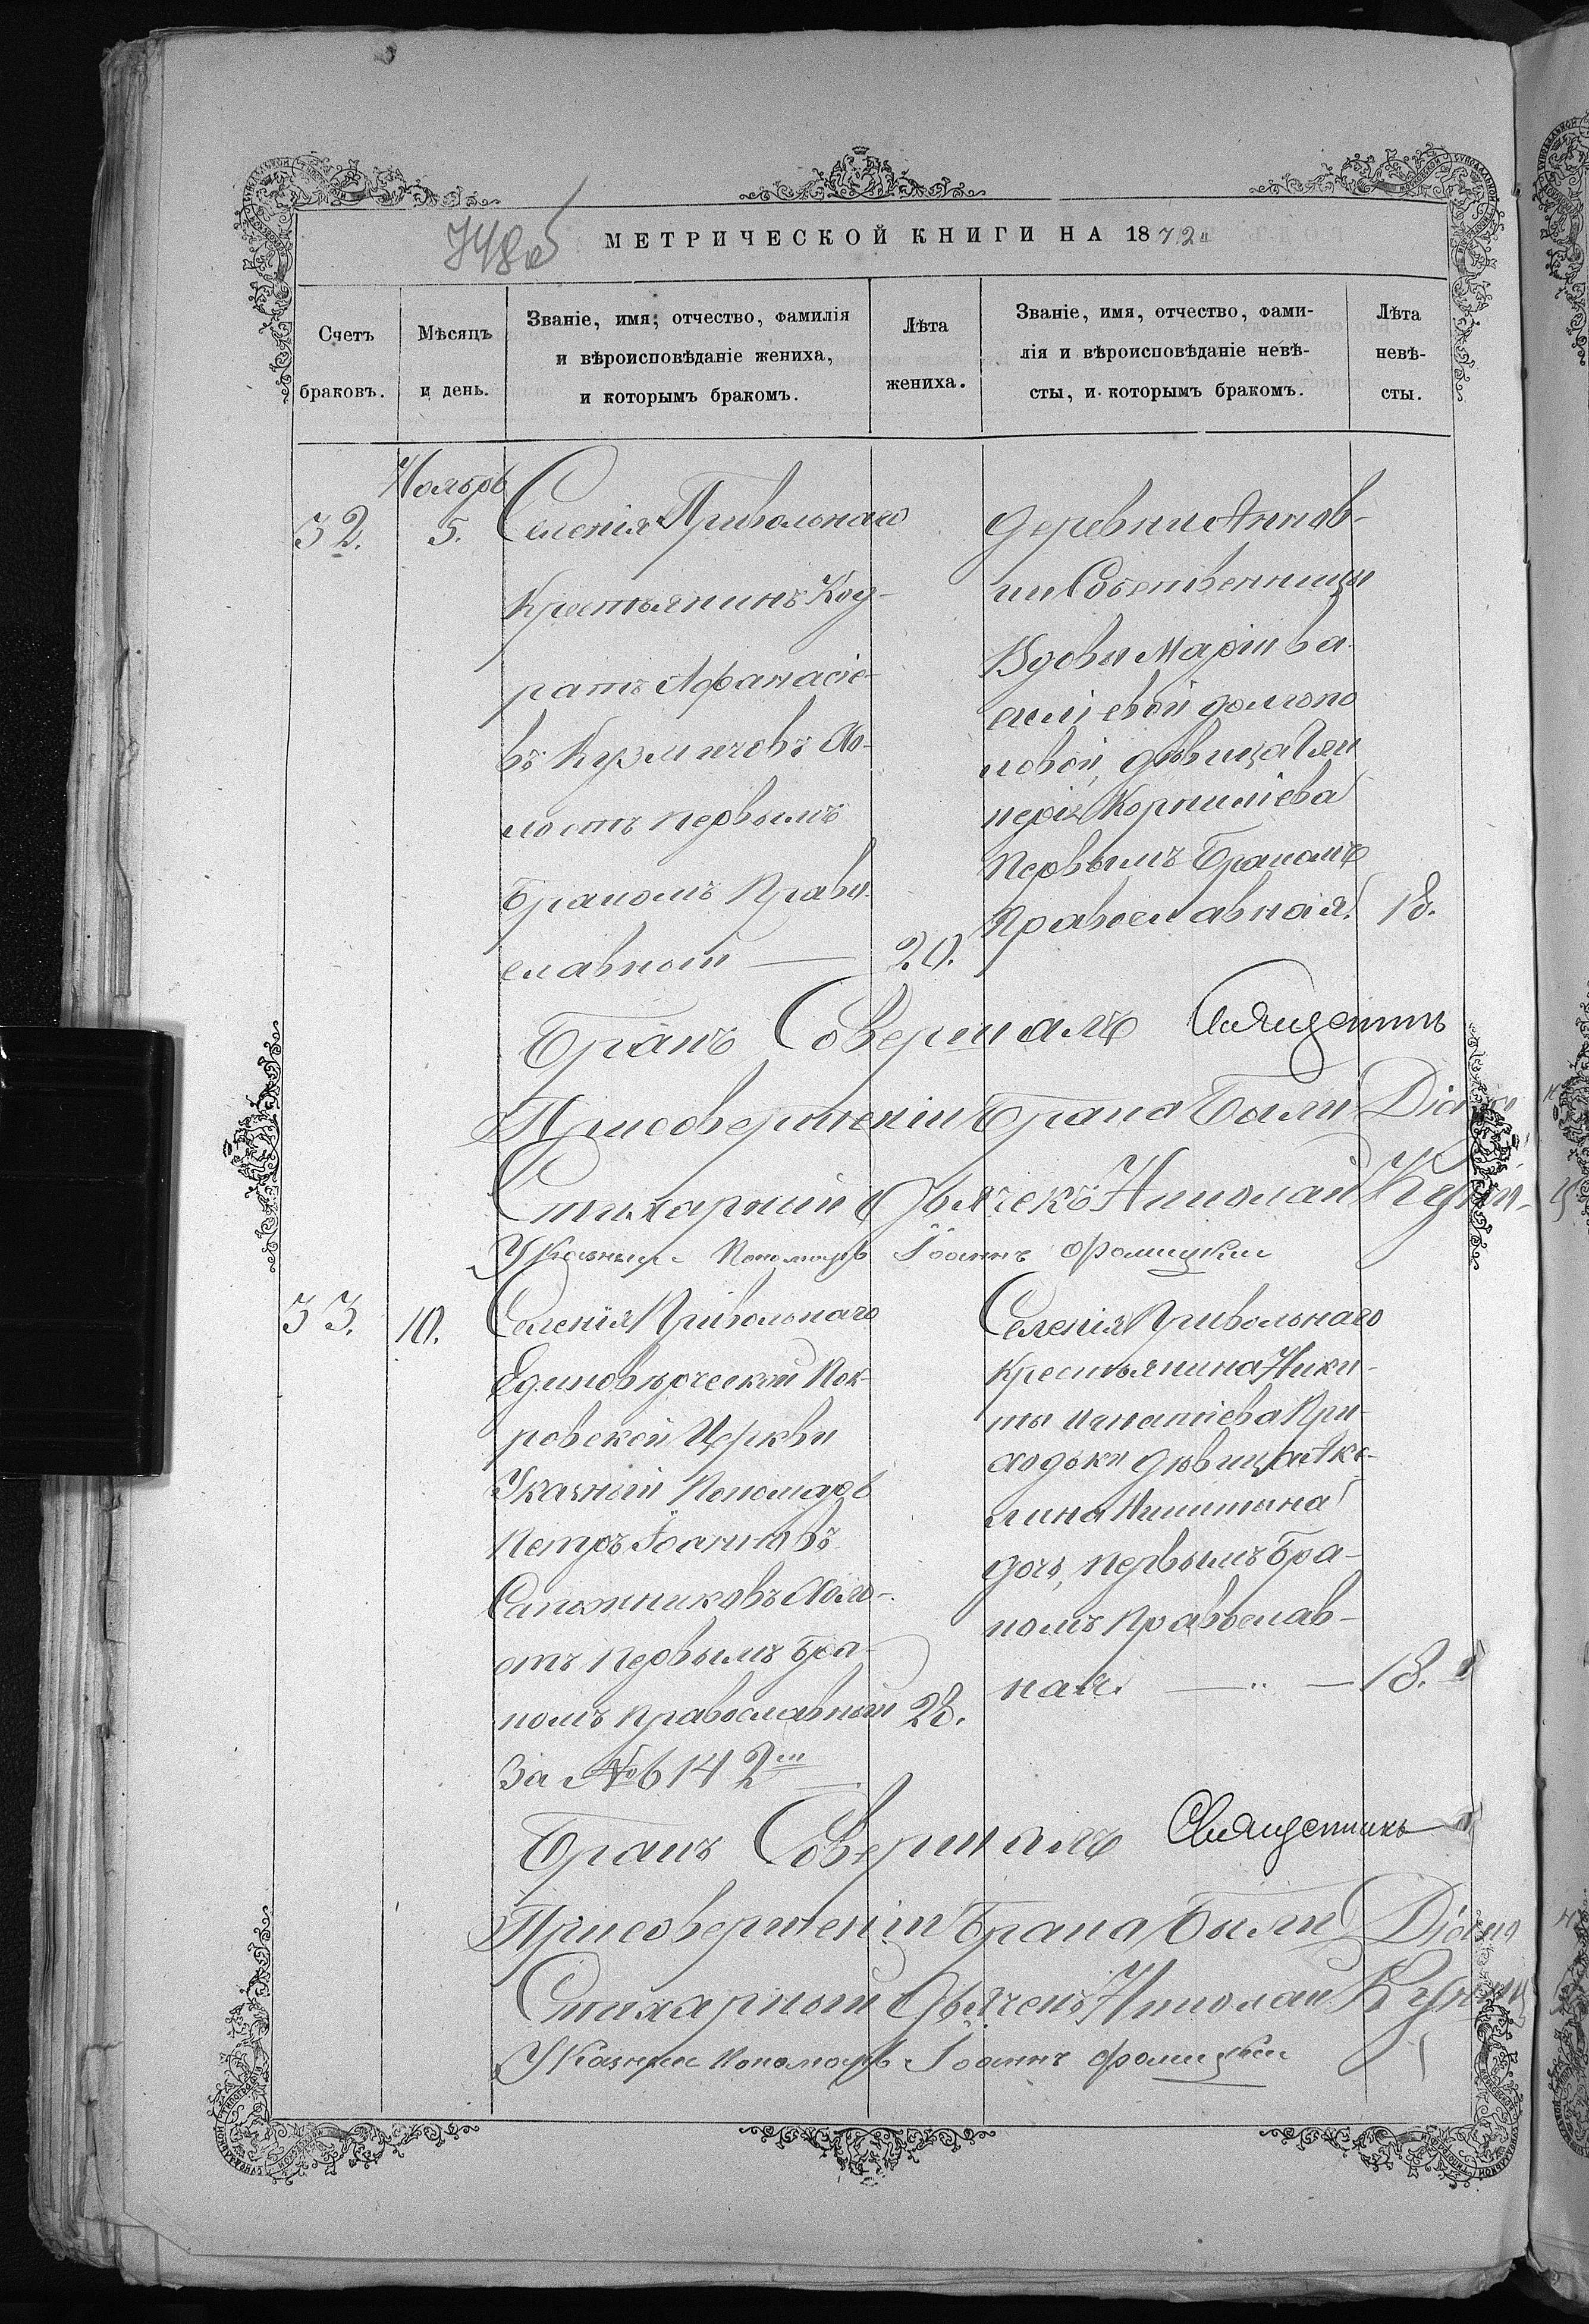 748об
МЕТРИЧЕСКОЙ КНИГИ НА 1872
Счетъ браковъ.
Мѣсяцъ и день.
Званіе, имя, отчество, фамилія
и вѣроисповѣданіе жениха,
и которымъ бракомъ.
Лѣта жениха.
Званіе, имя, отчество, фами-
лія и вѣроисповѣданіе невѣ-
сты, и которымъ бракомъ.
Лѣта невѣ-
сты.
Ноябрь
32.
5.
Селенія Привольнаго
Крестьянинъ Код-
ратъ Афанасіе-
въ Кузмичовъ Хо-
лостъ первымъ
бракомъ Право-
славный
20.
Деревни Аннов-
ки Собственницы
Вдовы Маріи Ва-
силіевой Долгопо
ловой, дѣвица
Корниліева
Первымъ бракомъ
Православная
18.
Бракъ Совершалъ Священникъ
При совершеніи брака были
Стихарный Дьячекъ Николай
Указный Пономарь Іоаннъ Фомицкій
33.
10.
Селенія Привольнаго
Единовѣрческой Пок-
ровской Церкви
Указный Пономарь
Петръ Іоанновъ
Сапожниковъ Холо-
стъ первымъ бра-
комъ православный
28.
За № 6142
Селенія Привольнаго
Крестьянина Ники-
ты Игнатіева При-
ходьки дѣвица Аку-
лина Никитина
дочь, первымъ бра-
комъ Православ-
ная.
18.
Бракъ Совершалъ Священникъ
При совершеніи брака были
Стихарный Дьячекъ Николай
Указный Пономарь Іоаннъ Фомицкій